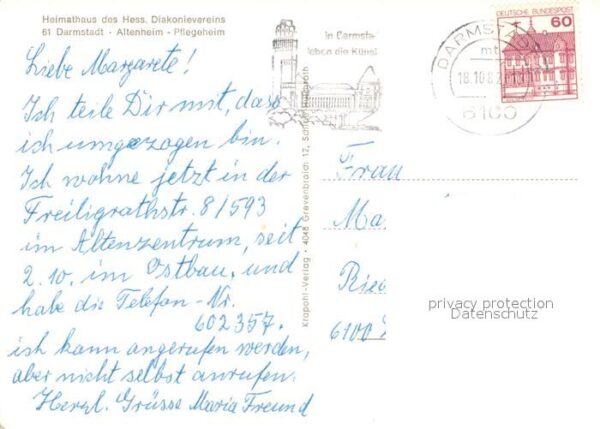 Heimathaus des Hess. Diakonievereins
61 Darmstadt - Altenheim - Pflegeheim
Liebe Margarete!
Ich teile Dir mit, dass
ich umgezogen bin.
Ich wohne jetzt in der
Freiligrathstr. 8/593
im Altenzentrum, seit
2.10. im Ostbau, und
habe die Telefon-Nr.
602357.
ich kann angerufen werden,
aber nicht selbst anrufen.
Herzl. Grüsse Maria Freund
in Darmsta-
leben die Künst
DARMSTADT
mt
18.10.82
6100
DEUTSCHE BUNDESPOST
60
Krapohl-Verlag · 4048 Grevenbroich 12, Schloß
Frau
Ma
Ried
6100
privacy protection
Datenschutz